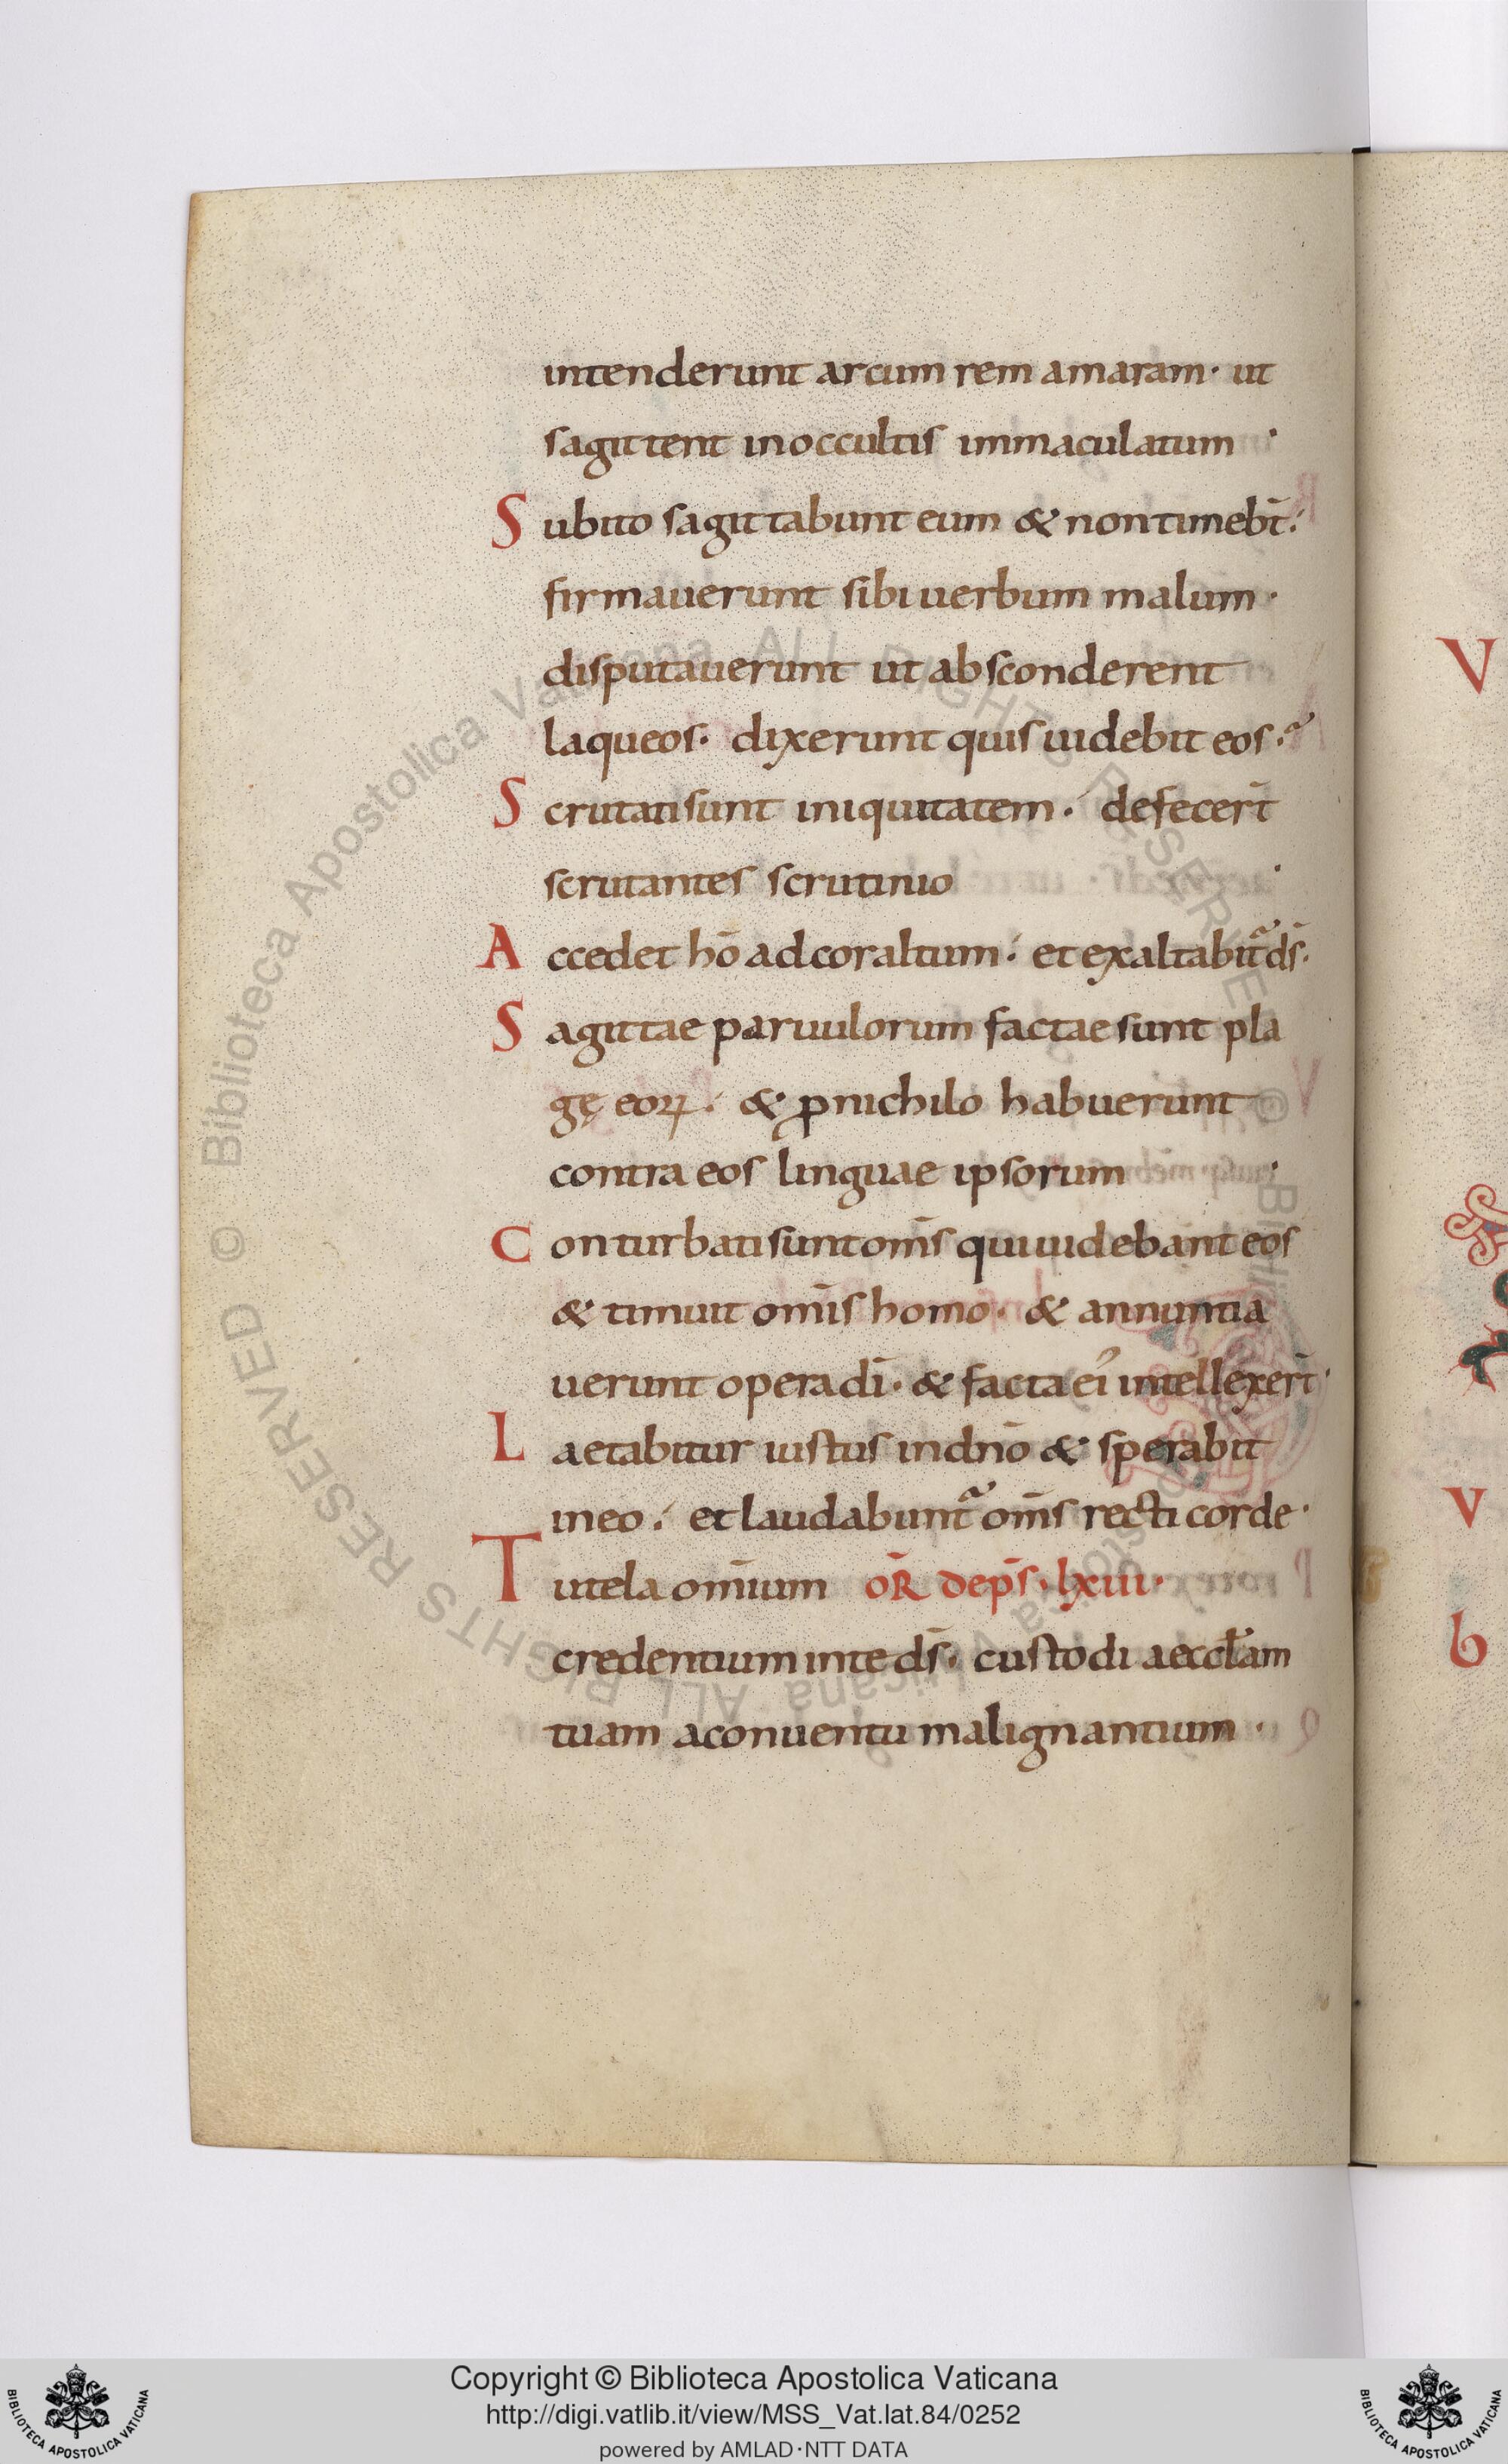 intenderunt arcum rem amaram · ut
sagittent inoccultis immaculatum ·
Subito sagittabunt eum & nontimebt̄ :
firmauerunt sibiuerbum malum ·
disputauerunt ut absconderent
laqueos · dixerunt quis uidebit eos ·
Scrutatisunt iniquitatem · defecert̄
scrutantes scrutinio ·
Accedet hō adcoraltum : et exaltabit̄ ds̄ ·
Sagittae paruulorum factaesunt pla
gę eoꝝ : & ꝓnichilo habuerunt
contra eos linguae ipsorum ·
Conturbatisuntom̄s quiuidebant eos
& timuit om̄is homo · & annuntia
uerunt operadī · & factaei᾽ intellexert̄ ·
Laetabitur iustus indn̄o & sperabit
ineo : et laudabunt̄ om̄s recti corde ·
Tutela om̄ium OR̄ deps̄ · lxiii ·
credentiuminte ds̄ · custodi aeccl̄am
tuam aconuentu malignantium ·
V
V
b
© Biblioteca Apostolica Vaticana ALL RIGHTS RESERVED
Copyright © Biblioteca Apostolica Vaticana
http://digi.vatlib.it/view/MSS_Vat.lat.84/0252
powered by AMLAD·NTT DATA
BIBLIOTECA APOSTOLICA VATICANA
BIBLIOTECA APOSTOLICA VATICANA